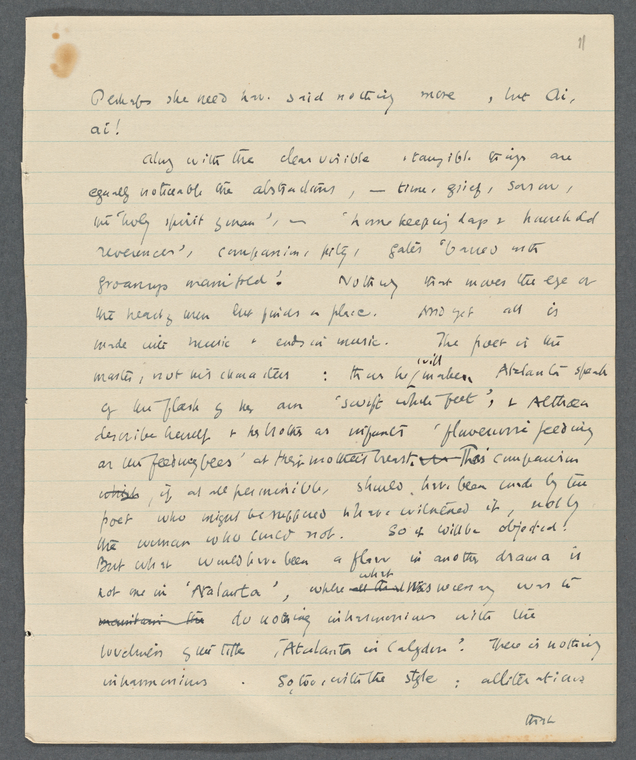 11
Perhaps she need have said nothing more, but Ai,
ai!
Along with the clear visible & tangible things are
equally noticeable the abstractions, — time, grief, sorrow,
the 'holy spirit of man', — 'homekeeping days & household
reverences', compassion, pity, gates 'barred with
groanings manifold'. Nothing that moves the eye or
the heart of men but finds a place. And yet all is
made into music & ends in music. The poet is the
master, not his characters : thus he will make Atalanta speak
of the flash of her own 'swift white feet', & Althaea
describe herself & her brothers as infants 'flowerwise feeding
as the feeding bees' at their mother's breast. This comparison
which, if at all permissible, should have been made by the
poet who might be supposed to have witnessed it, not by
the woman who could not. So it will be objected.
But what would have been a flaw in another drama is
not one in 'Atalanta', where what was necessary was to
maintain the do nothing inharmonious with the
loveliness of the title 'Atalanta in Calydon'. There is nothing
inharmonious. So, too, with the style : alliterations